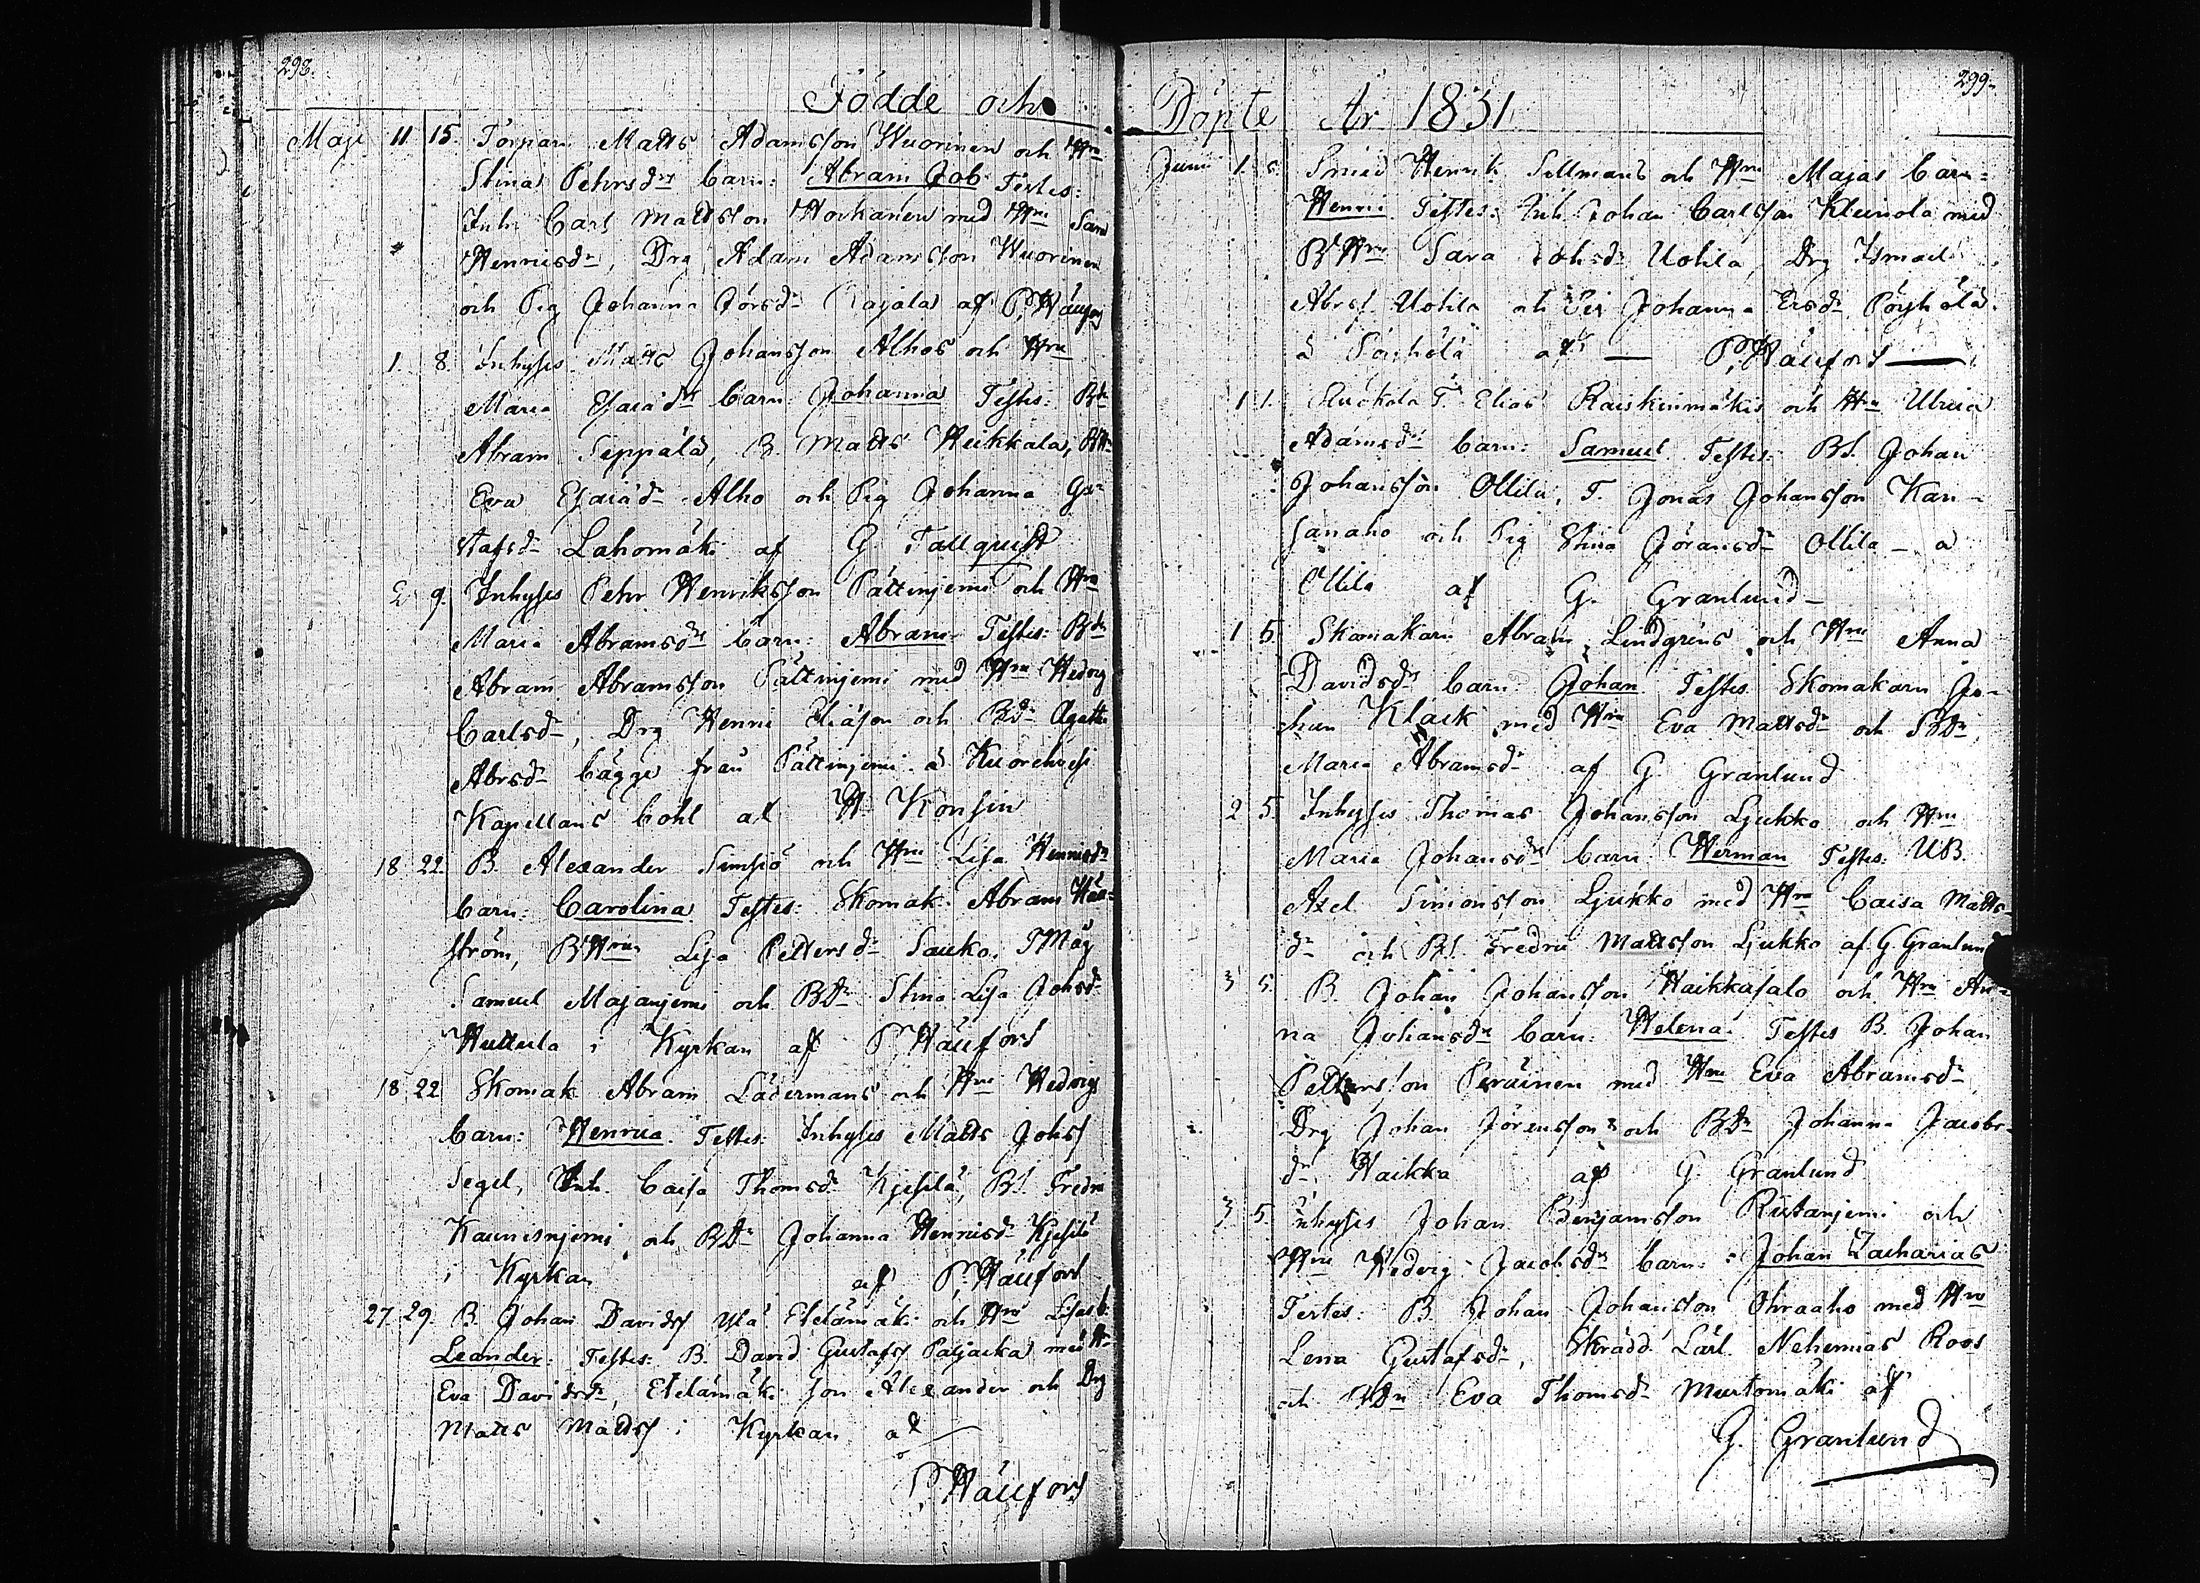 298.
Födde och
Maji 11 15. Torpare Matts Adamsson Wuorinen och Hru
Stinas Pehrsdrs barn: Abram Job Testes:
Inh. Carl Mattsson Horkanen med Hru Sara
Henricsdr, Drg Adam Adamsson Wuorinen
och Pig Johanna Jörsdr Rajala af P. Häufors
1. 8. Inhyses Matts Johansson Alhos och Hru
Maria Esaiädrs barn: Johanna Testes: Bdn
Abram Seppälä, B. Matts Heikkala, BHru
Eva Esaiädr Alho och Pig Johanna Gu-
stafsdr Lahomäki af G. Tallquist
2 9. Inhyses Pehr Henriksson Pättinjemi och Hru
Maria Abramsdrs barn: Abram Testes: Bdn
Abram Abramsson Pättinjemi med Hru Hedvig
Carlsdr, Drg Henric Eliässon och Bdr Agatha
Abrsdr bägge från Pättinjemi å Kuorehvesi
Kapellans bohl af H. Konsin
18 22. B. Alexander Simsiö och Hru Lisa Henricsdrs
barn: Carolina Testes: Skomak. Abram Häs-
ström, BHrun Lisa Pettersdr Sauko, TMåg
Samuel Majanjemi och BDr Stina Lisa Johsdr
Huttula i Kyrkan af P. Häufors
18 22 Skomak Abram Lädermans och Hru Hedvigs
barn: Henrica Testes: Inhyses Matts Johss
Segel, Inh. Caisa Thomsdr Kjesilä, BS. Fredric
Kaunisnjemi och BDr Johanna Henricsdr Kjesilä
i Kyrkan af P. Häufors
27. 29. B. Johan Davidss Ylä Etelämäki och Hru Lisas b:
Leander. Testes: B. David Gustafss Paijacka med H-
Eva Davidsdr, Etelämäki son Alexander och Drg
Matts Mattss i Kyrkan af
P. Häufors
299.
Döpte År 1831
Junii 1. 5. Smed Henrik Sillmans och Hru Majas barn:
Henric Testes: Inh. Johan Carlsson Kleinola med
BHru Sara Johsdr Uotila, Drg Ismael
Abrss Uotila och Pig Johanna Ersdr Pöyhölä
å Pöyhölä af P. Häufors
1 1. Ruokola T. Elias Raiskinmäkis och Hru Ulrica
Adamsdrs barn: Samuel Testes: BS. Johan
Johansson Ollila, T. Jonas Johansson Kan-
sanaho och Pig Stina Göransdr Ollila å
Ollila af G. Granlund
1 5. Skomakarn Abram Lindgrens och Hru Anna
Davidsdrs barn: Johan Testes Skomakarn Jo-
han Klack med Hru Eva Mattsdr och BDr
Maria Abramsdr af G. Granlund
2 5. Inhyses Thomas Johansson Ljukko och Hru
Maria Johansdrs barn: Herman Testes: UB.
Axel Simonsson Ljukko med Hru Caisa Matts-
dr och BS. Fredric Mattsson Ljukko af G. Granlund
3 5. B. Johan Johansson Haikkasalo och Hru An-
na Johansdrs barn: Helena. Testes B. Johan
Pettersson Peräinen med Hru Eva Abramsdr
Drg Johan Jörensson och BDr Johanna Jacobs-
dr Haikka af G. Granlund
3 5. Inhyses Johan Benjamsson Riitanjemi och
Hru Hedvig Jacobsdrs barn: Johan Zacharias
Testes: B. Johan Johansson Ohraaho med Hru
Lena Gustafsdr, Skrädd Lärl. Nehemias Roos
och BDr Eva Thomsdr Murtomäki af
G. Granlund